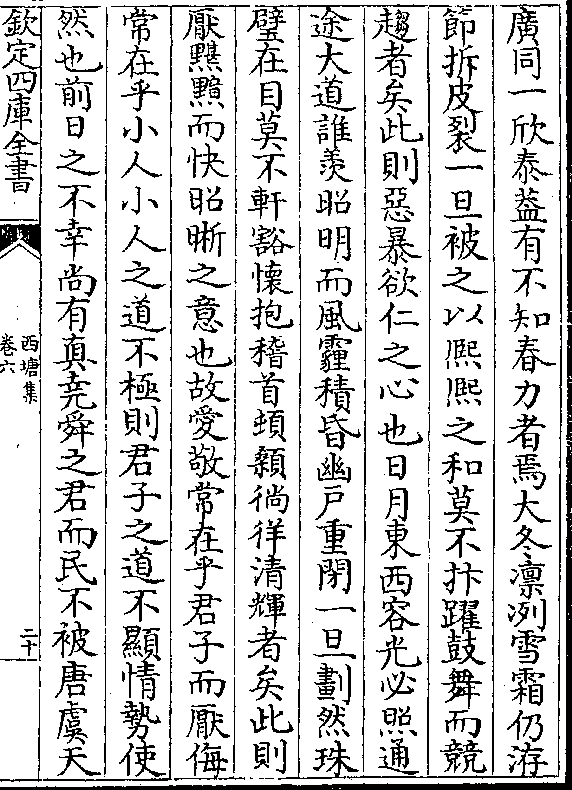 廣同一欣泰葢有不知春力者焉大冬凛冽雪霜仍洊
節拆皮裂一旦被之以熈熈之和莫不抃躍鼓舞而競
趨者矣此則惡暴欲仁之心也日月東西容光必照通
途大道誰羡昭明而風霾積昏幽戸重閉一旦劃然珠
璧在目莫不軒豁懷抱稽首頓顙徜徉清輝者矣此則
厭黮黯而快昭晰之意也故愛敬常在乎君子而厭侮
常在乎小人小人之道不極則君子之道不顯情勢使
然也前日之不幸尚有真堯舜之君而民不被唐虞天
欽定四庫全書
西塘集
卷六
二十